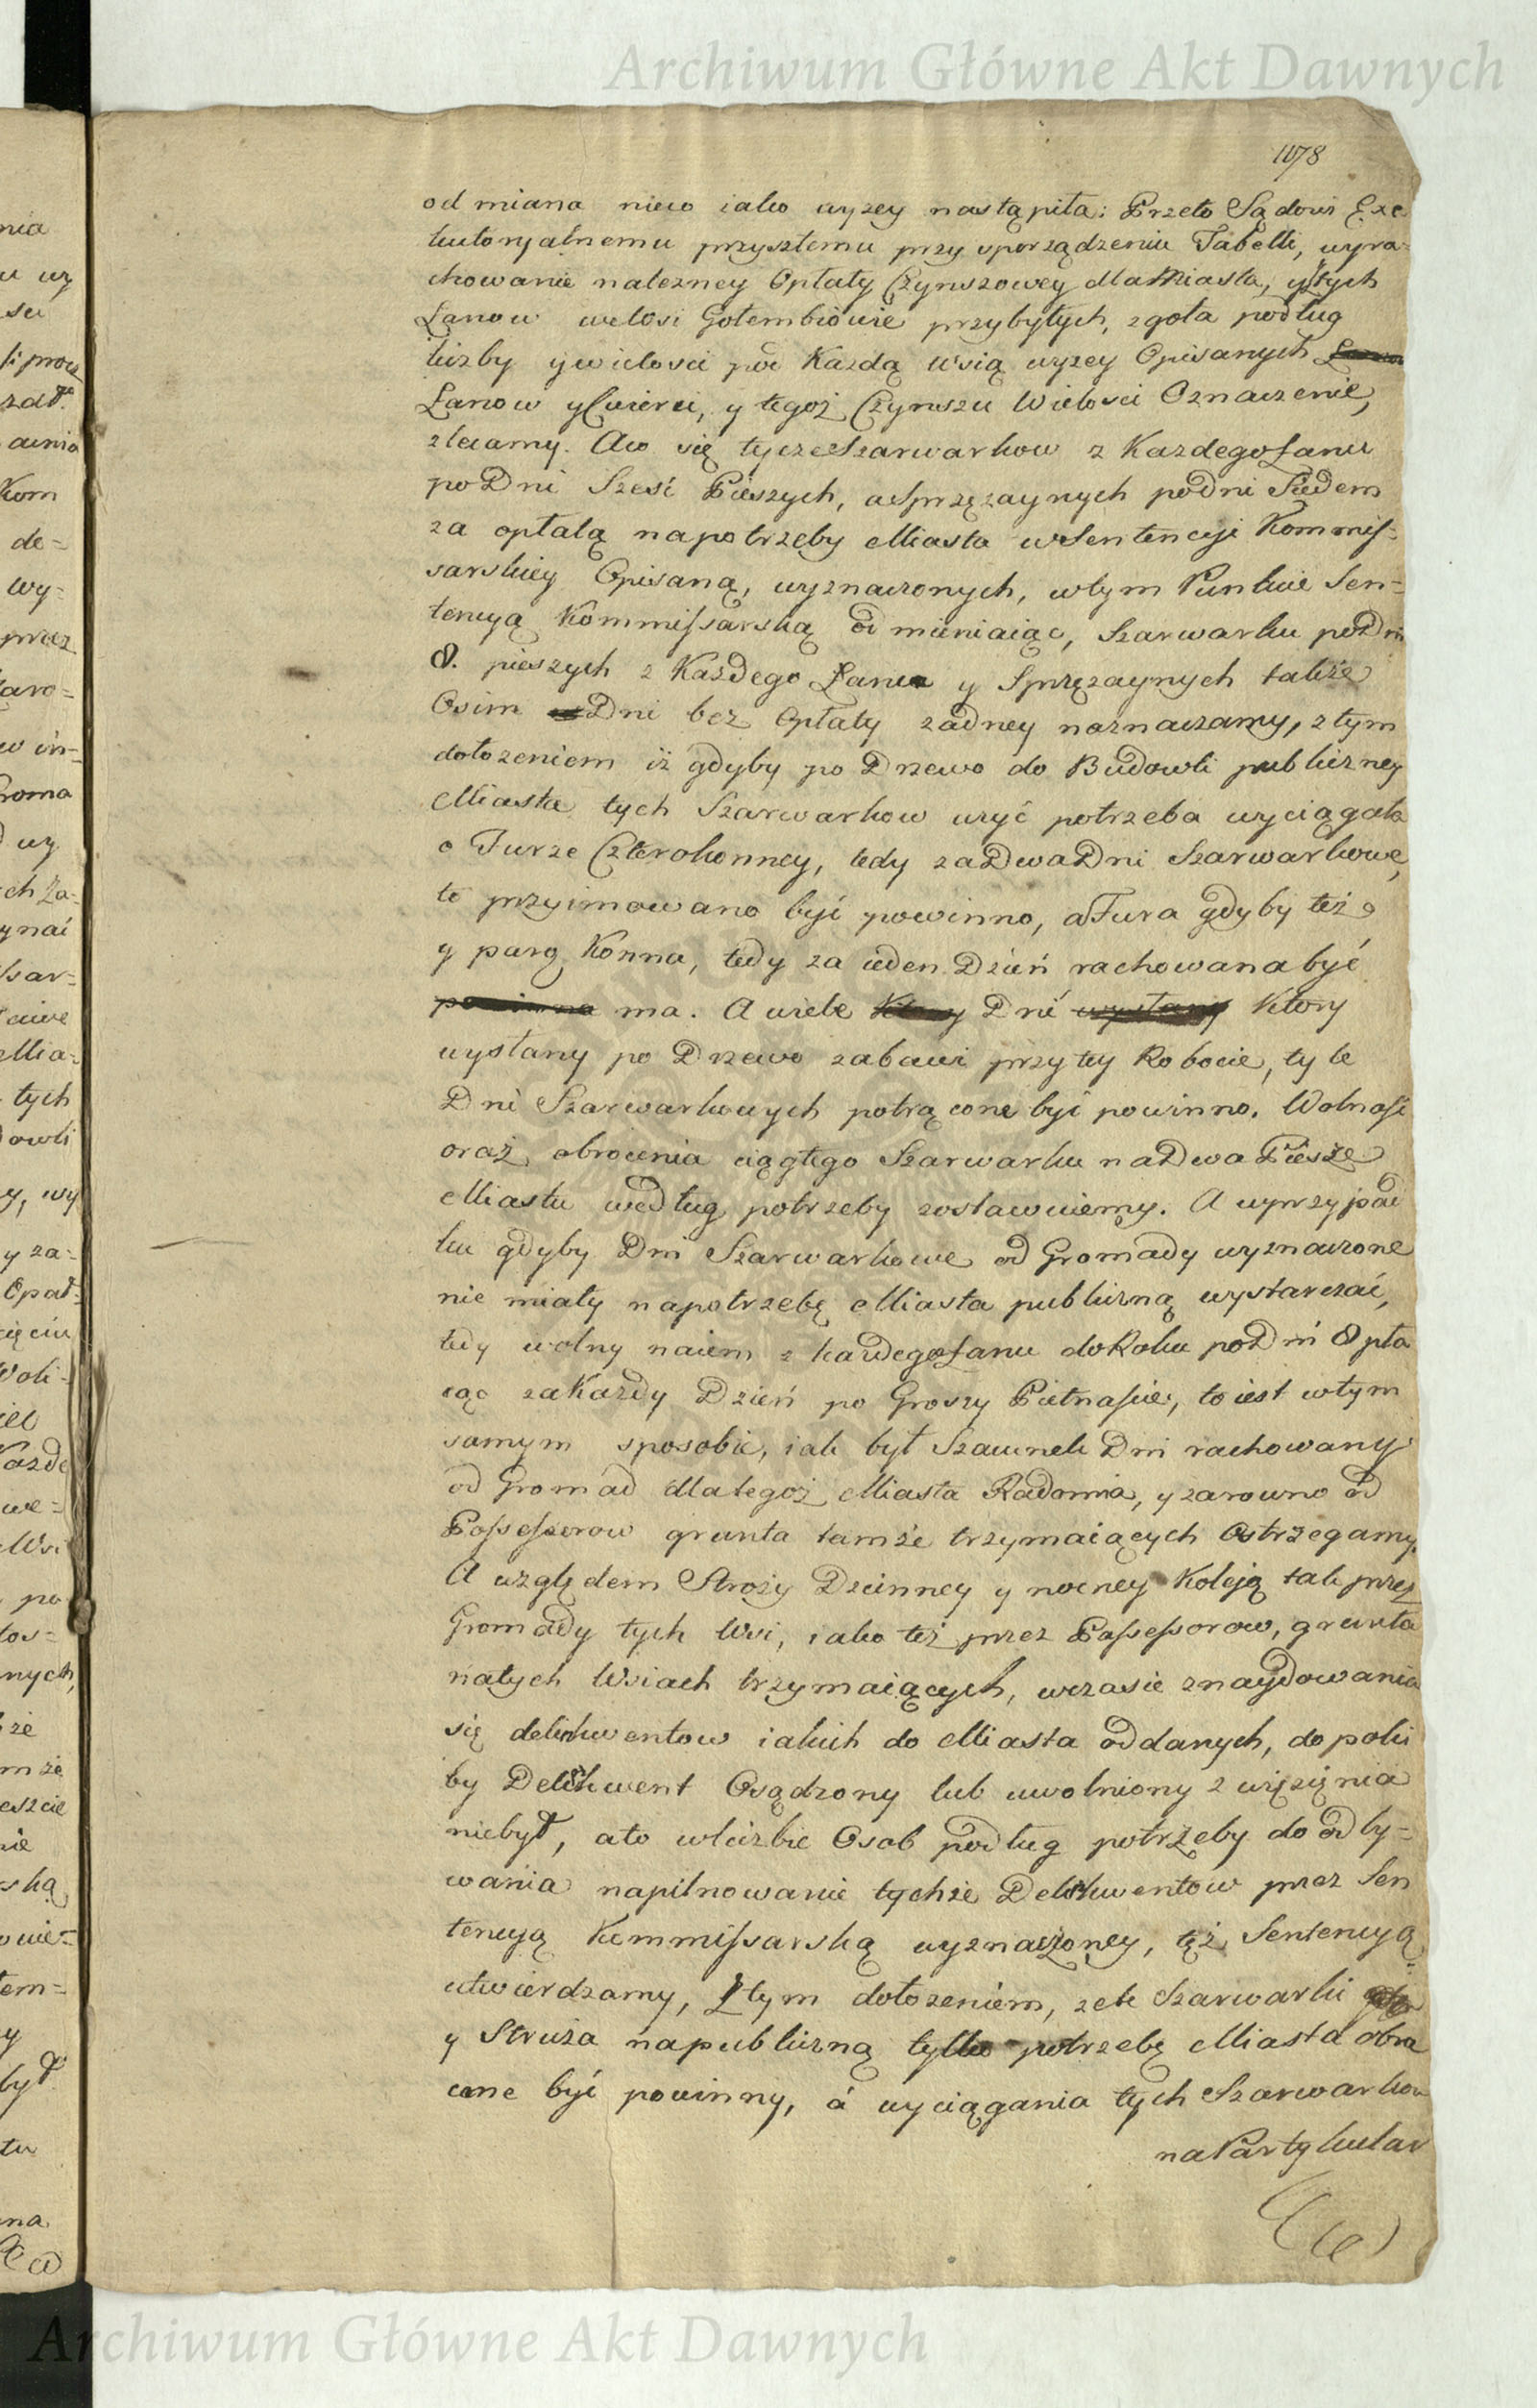 Archiwum Główne Akt Dawnych
1078
od miana nieco iako wyzey nastąpiła: Przeto Sądowi Exe
kutoryalnemu przyszłemu przy sporządzeniu Tabelli, wyra-
chowanie nalezney Opłaty Czynszowey dla Miasta, y tych
Łanow we Wsi Gołembiowie przybyłych, zgoła podług
liczby y wielosci pod Kazdą Wsią wyzey Opisanych
Łanow y Cwierci, y tegoż Czynszu Wielosci Oznaczenie,
zlecamy. A co się tycze Szarwarkow z Kazdego Łanu
po Dni Szesć Pieszych, a Sprzęzaynych po dni Siedem
za opłatą na potrzeby Miasta w Sentencyi Kommis-
sarskiey Opisaną, wyznaczonych, w tym Punkcie Sen-
tencyą Kommissarską odmieniaiąc, Szarwarku po Dni
8. pieszych z Każdego Łanu y Sprzęzaynych także
Osim Dni bez Opłaty zadney naznaczamy, z tym
dołozeniem iż gdyby po Drzewo do Budowli publiczney
Miasta tych Szarwarkow uzyć potrzeba wyciągała
o Furze Czterokonney, tedy za Dwa Dni Szarwarkowe,
to przyimowano być powinno, a Fura gdyby też o
y parę Konna, tedy za ieden Dzień rachowana być
ma. A wiele Dni Ktory
wysłany po Drzewo zabawi przy tey Robocie, tyle
Dni Szarwarkowych potrącone być powinno. Wolność
oraz obrocenia ciągłego Szarwarku na Dwa Piesze
Miastu według potrzeby zostawuiemy. A w przypad
ku gdyby Dni Szarwarkowe od Gromady wyznaczone
nie miały na potrzebę Miasta publiczną wystarczać,
tedy wolny naiem z kazdego Łanu do Roku po Dni 8 pła
cąc za Kazdy Dzień po Groszy Pietnaście, to iest w tym
samym sposobie, iak był Szacunek Dni rachowany
od Gromad dla tegoż Miasta Radomia, y zarowno od
Possessorow grunta tamże trzymaiących Ostrzegamy.
A względem Stroży Dzienney y nocney Koleją tak przez
Gromady tych Wsi, iako też przez Possessorow, grunta
na tych Wsiach trzymaiących, w czasie znaydowania
się delinkwentow iakich do Miasta oddanych, dopoki
by Delinkwent Osądzony lub uwolniony z więzięnia
niebył, a to w liczbie Osob podług potrzeby do odby-
wania na pilnowanie tychże Delinkwentow przez Sen
tencyą Kommissarską wyznaczoney, tęż Sentencyą
utwierdzamy, z tym dołozeniem, ze te Szarwarki
y Struża na publiczną tylko potrzebę Miasta obro
cone być powinny, á wyciągania tych Szarwarkow
na Partykular
Archiwum Główne Akt Dawnych